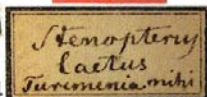 Stenopterus
laetus
Turcmenia mihi